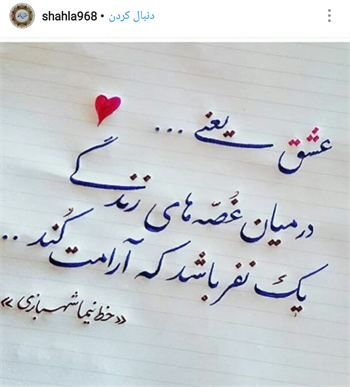 shahla968 • دنبال کردن
عشق یعنے ...
درمیان غُصّه های زندگے
یک نفر باشد که آرامت کُند ..
«خط نیما شهبازی»